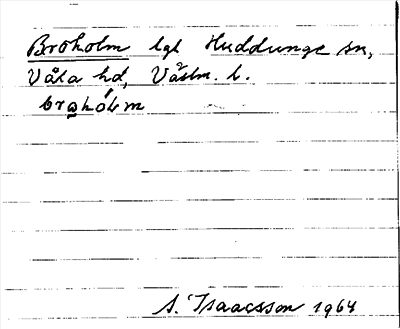 Broholm lgl Huddunge sn,
Våla hd, Våstm. l.
brohólm
A. Isaacsson 1964